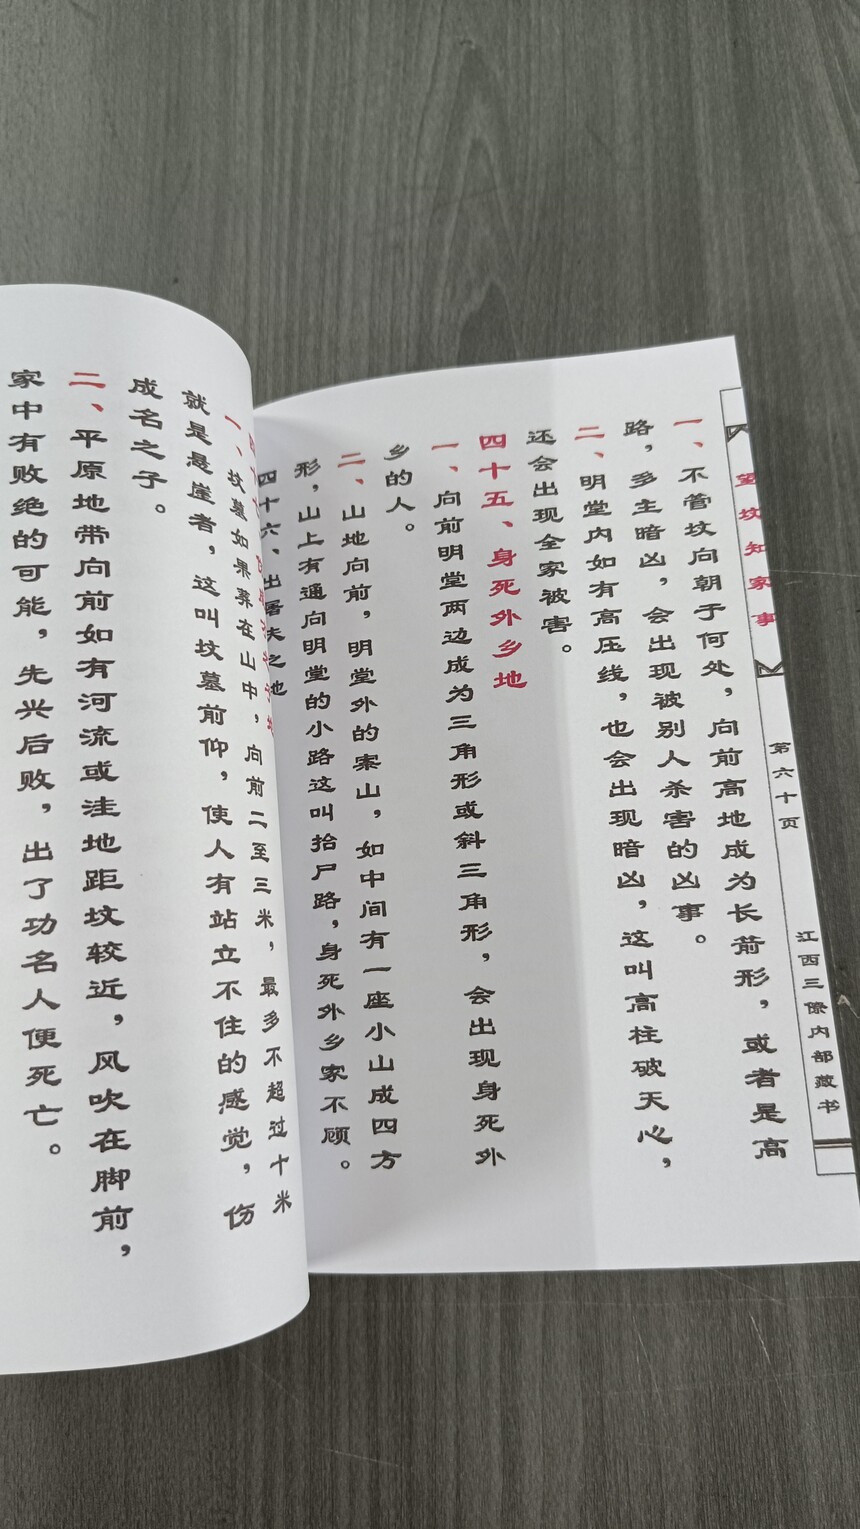 望坟知家事
第六十页
江西三僚内部藏书
一、不管坟向朝于何处，向前高地成为长箭形，或者是高
路，多主暗凶，会出现被别人杀害的凶事。
二、明堂内如有高压线，也会出现暗凶，这叫高柱破天心，
还会出现全家被害。
四十五、身死外乡地
一、向前明堂两边成为三角形或斜三角形，会出现身死外
乡的人。
二、山地向前，明堂外的案山，如中间有一座小山成四方
形，山上有通向明堂的小路这叫抬尸路，身死外乡家不顾。
四十六、出屠夫之地
一、坟墓如果葬在山中，向前二至三米，最多不超过十米
就是悬崖者，这叫坟墓前仰，使人有站立不住的感觉，伤
成名之子。
二、平原地带向前如有河流或洼地距坟较近，风吹在脚前，
家中有败绝的可能，先兴后败，出了功名人便死亡。